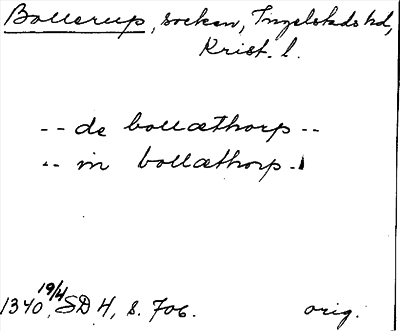 Bollerup, socken, Ingelstads hd,
Krist. l.
-- de bollæthorp --
-- in bollæthorp --
1340 19/4, SDH, s. 706. orig.